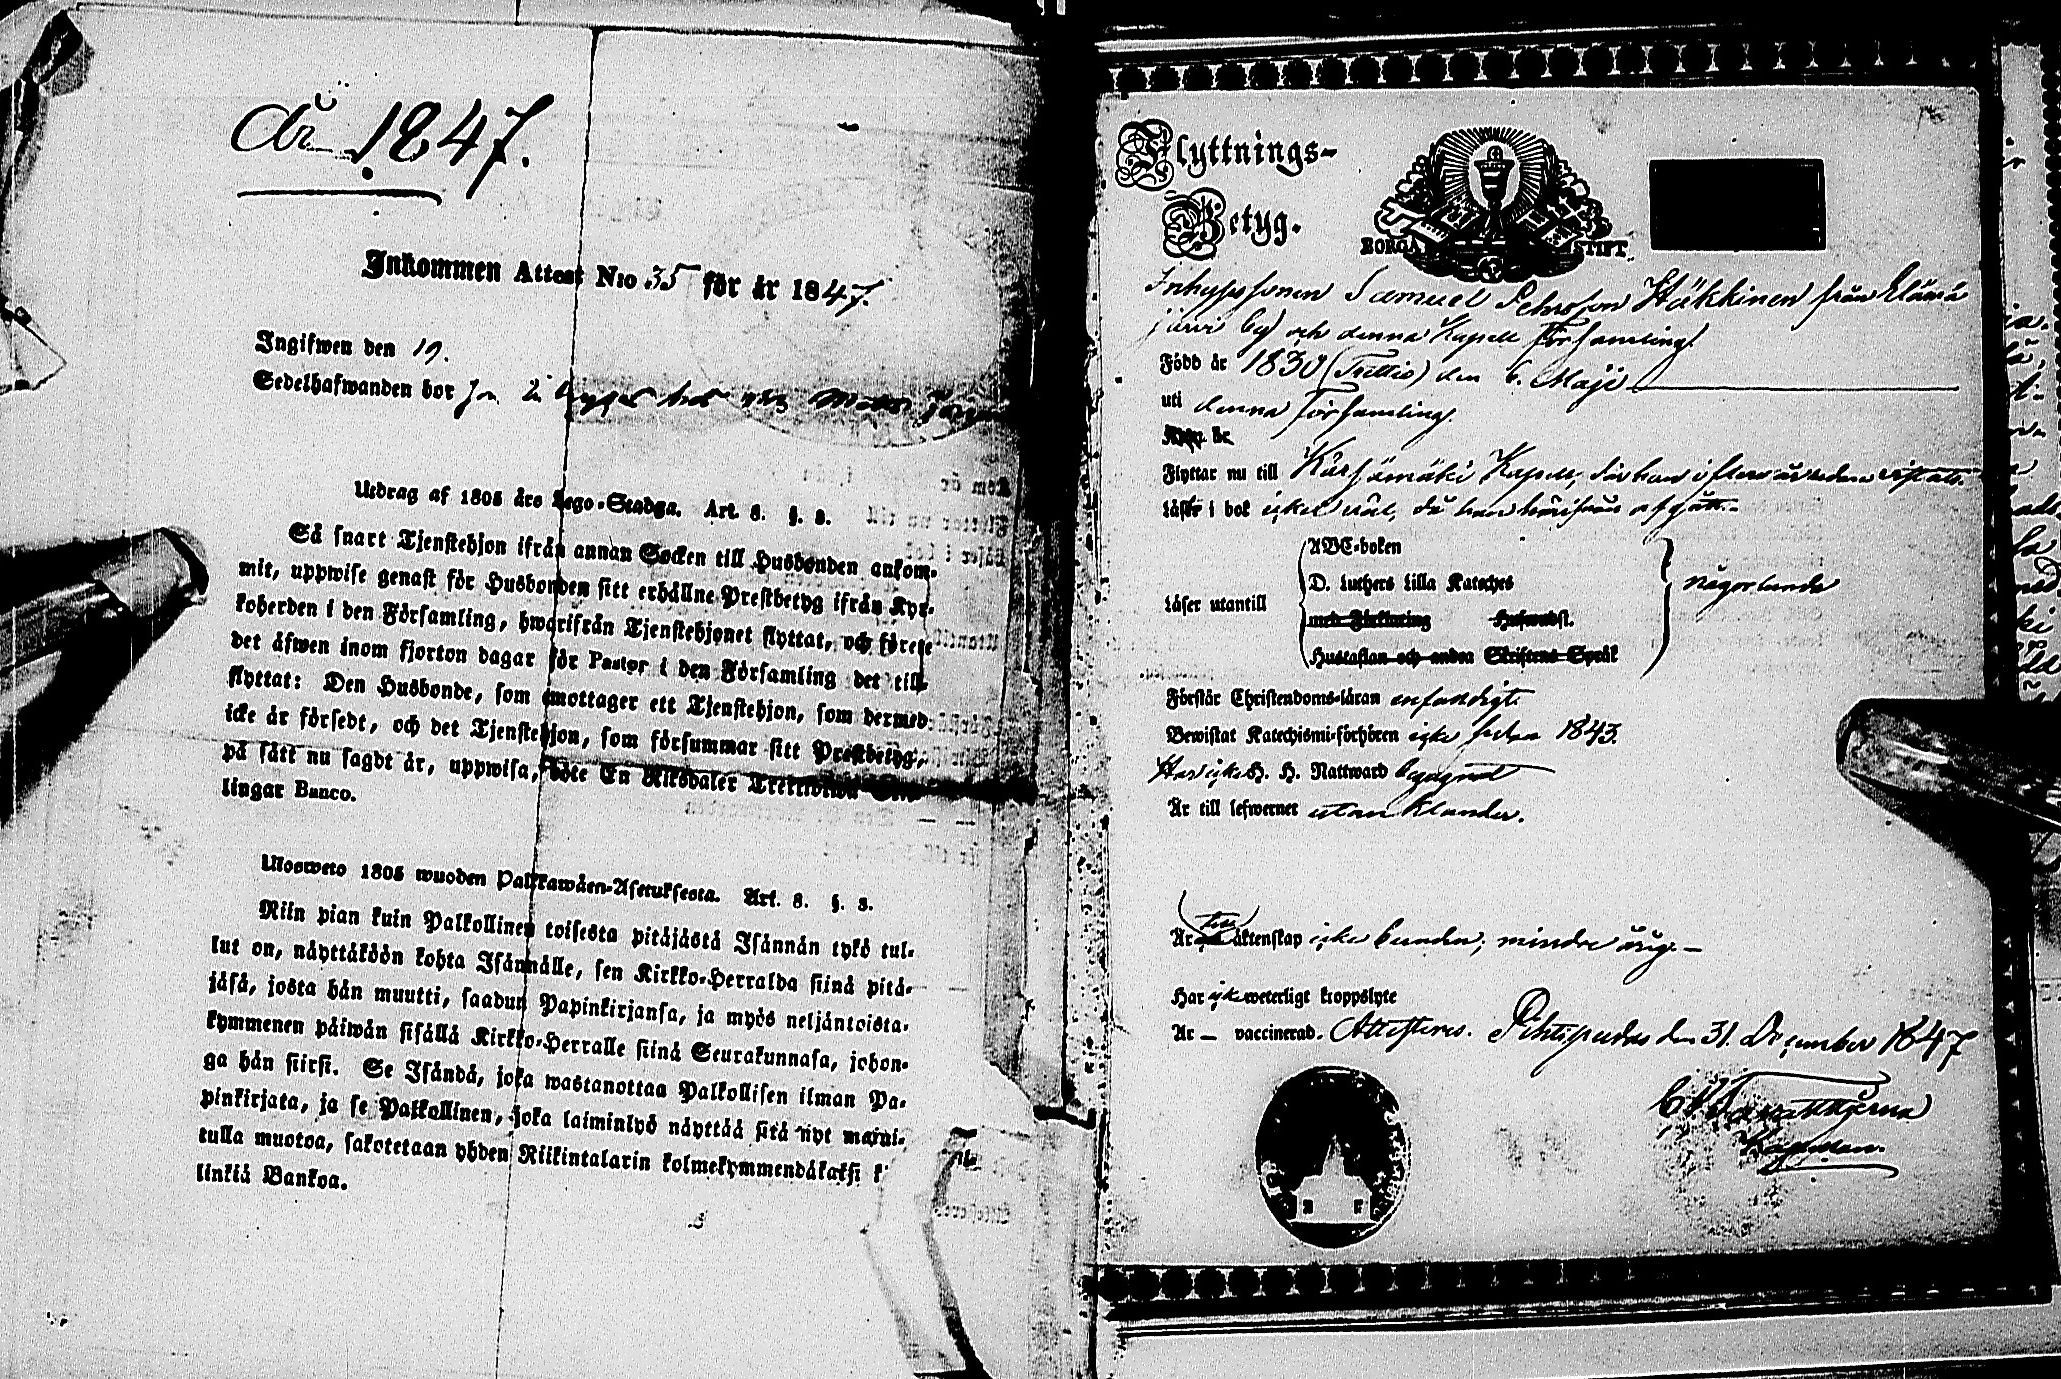 År 1847.
Inkommen Attest N:o 35 för år 1847.
Ingifwen den 19.
Sedelhafwanden bor
Utdrag af 1805 års Lego-Stadga. Art. 8. §. 3.
Så snart Tjenstehjon ifrån annan Socken till Husbonden ankom-
mit, uppwise genast för Husbonden sitt erhållne Prestbetyg ifrån Kyr-
koherden i den Församling, hwarifrån Tjenstehjonet flyttat, och förete
det äfwen inom fjorton dagar för Pastor i den Församling det till-
flyttat: Den Husbonde, som emottager ett Tjenstehjon, som dermed
icke är försedt, och det Tjenstehjon, som försummar sitt Prestbetyg,
på sätt nu sagdt är, uppwisa, böte En Riksdaler Trettiotwå
lingar Banco.
Ulosweto 1805 wuoden Palkkawäen-Asetuksesta. Art. 8. §. 3.
Niin pian kuin Palkollinen toisesta pitäjästä Isännän tykö tul-
lut on, näyttäköön kohta Isännälle, sen Kirkko-Herralda siinä pitä-
jäsä, josta hän muutti, saadun Papinkirjansa, ja myös neljäntoista-
kymmenen päiwän sisällä Kirkko-Herralle siinä Seurakunnasa, johon-
ga hän siirsi. Se Isändä, joka wastanottaa Palkollisen ilman Pa-
pinkirjata, ja se Palkollinen, joka laiminlyö näyttää sitä nyt maini-
tulla muotoa, sakotetaan yhden Riikintalarin kolmekymmendäkaksi k
linkiä Bankoa.
Flyttnings-
Betyg.
BORGÅ STIFT.
Inhyssonen Samuel Pehrsson Häkkinen från Elämä
järvi by och denna Kapell Församling
Född år 1830 (Trettio) den 6. Maji
uti denna Församling.
Kom år
Flyttar nu till Kärsämäki Kapell, där han i flera år redan vistats.
Läser i bok icke väl, då han härifrån afgått.
ABC-boken
D. Luthers Lilla Kateches
Läser utantill
med Förklaring Hufwudst.
Hustaflan och andra Skriftens Språk
någorlunda
Förstår Christendoms-läran enfaldigt
Bewistat Katechismi-förhören icke sedan 1843.
Har icke H. H. Nattward begagnat
Är till lefwernet utan klander.
Är till äktenskap icke bunden; minderårig.
Har icke weterligt kroppslyte
Är — vaccinerad. Attesteras. Pihtipudas den 31. December 1847
Kapellan.